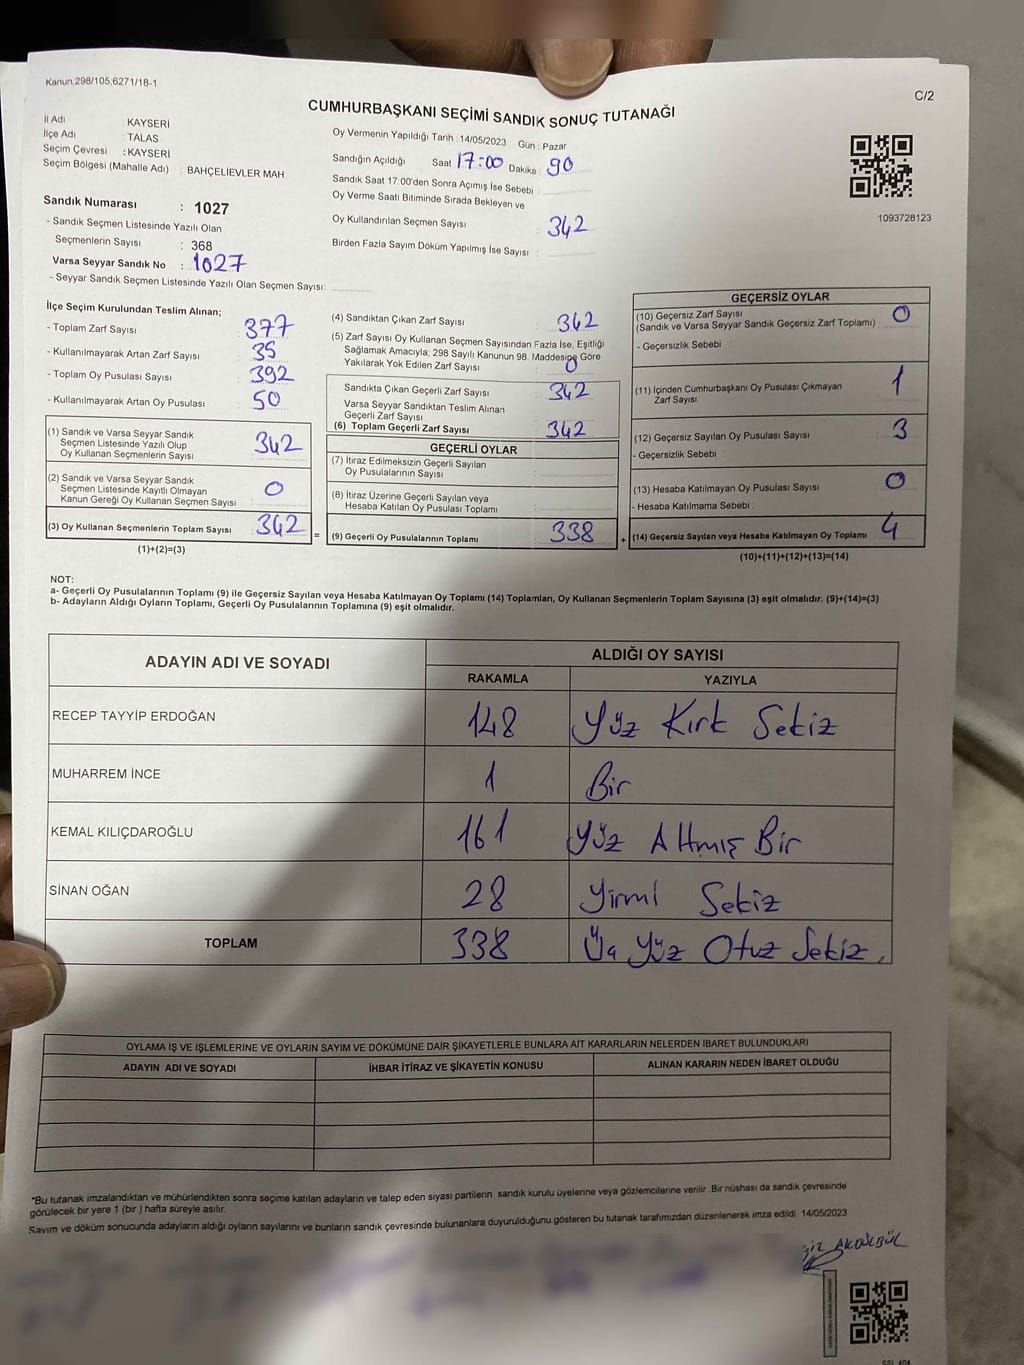 Kanun.298/105,6271/18-1
C/2
CUMHURBAŞKANI SEÇİMİ SANDIK SONUÇ TUTANAĞI
İl Adı : KAYSERİ
İlçe Adı : TALAS
Seçim Çevresi : KAYSERİ
Seçim Bölgesi (Mahalle Adı) : BAHÇELİEVLER MAH.
Oy Vermenin Yapıldığı Tarih :14/05/2023 Gün : Pazar
Sandığın Açıldığı Saat 17:00 Dakika : 90
Sandık Saat 17:00'den Sonra Açımış İse Sebebi :
Oy Verme Saati Bitiminde Sırada Bekleyen ve
Oy Kullandırılan Seçmen Sayısı : 342
Birden Fazla Sayım Döküm Yapılmış İse Sayısı :
1093728123
Sandık Numarası : 1027
- Sandık Seçmen Listesinde Yazılı Olan
Seçmenlerin Sayısı : 368
Varsa Seyyar Sandık No : 1027
- Seyyar Sandık Seçmen Listesinde Yazılı Olan Seçmen Sayısı:
İlçe Seçim Kurulundan Teslim Alınan;
- Toplam Zarf Sayısı : 377
- Kullanılmayarak Artan Zarf Sayısı : 35
- Toplam Oy Pusulası Sayısı : 392
- Kullanılmayarak Artan Oy Pusulası : 50
(1) Sandık ve Varsa Seyyar Sandık
Seçmen Listesinde Yazılı Olup
Oy Kullanan Seçmenlerin Sayısı : 342
(2) Sandık ve Varsa Seyyar Sandık
Seçmen Listesinde Kayıtlı Olmayan
Kanun Gereği Oy Kullanan Seçmen Sayısı : 0
(3) Oy Kullanan Seçmenlerin Toplam Sayısı : 342
(1)+(2)=(3)
=
(4) Sandıktan Çıkan Zarf Sayısı : 342
(5) Zarf Sayısı Oy Kullanan Seçmen Sayısından Fazla İse, Eşitliği
Sağlamak Amacıyla; 298 Sayılı Kanunun 98. Maddesine Göre
Yakılarak Yok Edilen Zarf Sayısı : 0
Sandıkta Çıkan Geçerli Zarf Sayısı : 342
Varsa Seyyar Sandıktan Teslim Alınan
Geçerli Zarf Sayısı :
(6) Toplam Geçerli Zarf Sayısı : 342
GEÇERLİ OYLAR
(7) İtiraz Edilmeksizin Geçerli Sayılan
Oy Pusulalarının Sayısı :
(8) İtiraz Üzerine Geçerli Sayılan veya
Hesaba Katılan Oy Pusulası Toplamı :
(9) Geçerli Oy Pusulalarının Toplamı : 338
+
GEÇERSİZ OYLAR
(10) Geçersiz Zarf Sayısı : 0
(Sandık ve Varsa Seyyar Sandık Geçersiz Zarf Toplamı)
- Geçersizlik Sebebi :
(11) İçinden Cumhurbaşkanı Oy Pusulası Çıkmayan
Zarf Sayısı : 1
(12) Geçersiz Sayılan Oy Pusulası Sayısı : 3
- Geçersizlik Sebebi :
(13) Hesaba Katılmayan Oy Pusulası Sayısı : 0
- Hesaba Katılmama Sebebi :
(14) Geçersiz Sayılan veya Hesaba Katılmayan Oy Toplamı : 4
(10)+(11)+(12)+(13)=(14)
NOT:
a- Geçerli Oy Pusulalarının Toplamı (9) ile Geçersiz Sayılan veya Hesaba Katılmayan Oy Toplamı (14) Toplamları, Oy Kullanan Seçmenlerin Toplam Sayısına (3) eşit olmalıdır. (9)+(14)=(3)
b- Adayların Aldığı Oyların Toplamı, Geçerli Oy Pusulalarının Toplamına (9) eşit olmalıdır.
ADAYIN ADI VE SOYADI
ALDIĞI OY SAYISI
RAKAMLA YAZIYLA
RECEP TAYYİP ERDOĞAN 148 Yüz Kırk Sekiz
MUHARREM İNCE 1 Bir
KEMAL KILIÇDAROĞLU 161 Yüz Altmış Bir
SİNAN OĞAN 28 Yirmi Sekiz
TOPLAM 338 Üç Yüz Otuz Sekiz.
OYLAMA İŞ VE İŞLEMLERİNE VE OYLARIN SAYIM VE DÖKÜMÜNE DAİR ŞİKAYETLERLE BUNLARA AİT KARARLARIN NELERDEN İBARET BULUNDUKLARI
ADAYIN ADI VE SOYADI İHBAR İTİRAZ VE ŞİKAYETİN KONUSU ALINAN KARARIN NEDEN İBARET OLDUĞU
*Bu tutanak imzalandıktan ve mühürlendikten sonra seçime katılan adayların ve talep eden siyasi partilerin sandık kurulu üyelerine veya gözlemcilerine verilir .Bir nüshası da sandık çevresinde
görülecek bir yere 1 (bir ) hafta süreyle asılır.
Sayım ve döküm sonucunda adayların aldığı oyların sayılarını ve bunların sandık çevresinde bulunanlara duyurulduğunu gösteren bu tutanak tarafımızdan düzenlenerek imza edildi. 14/05/2023